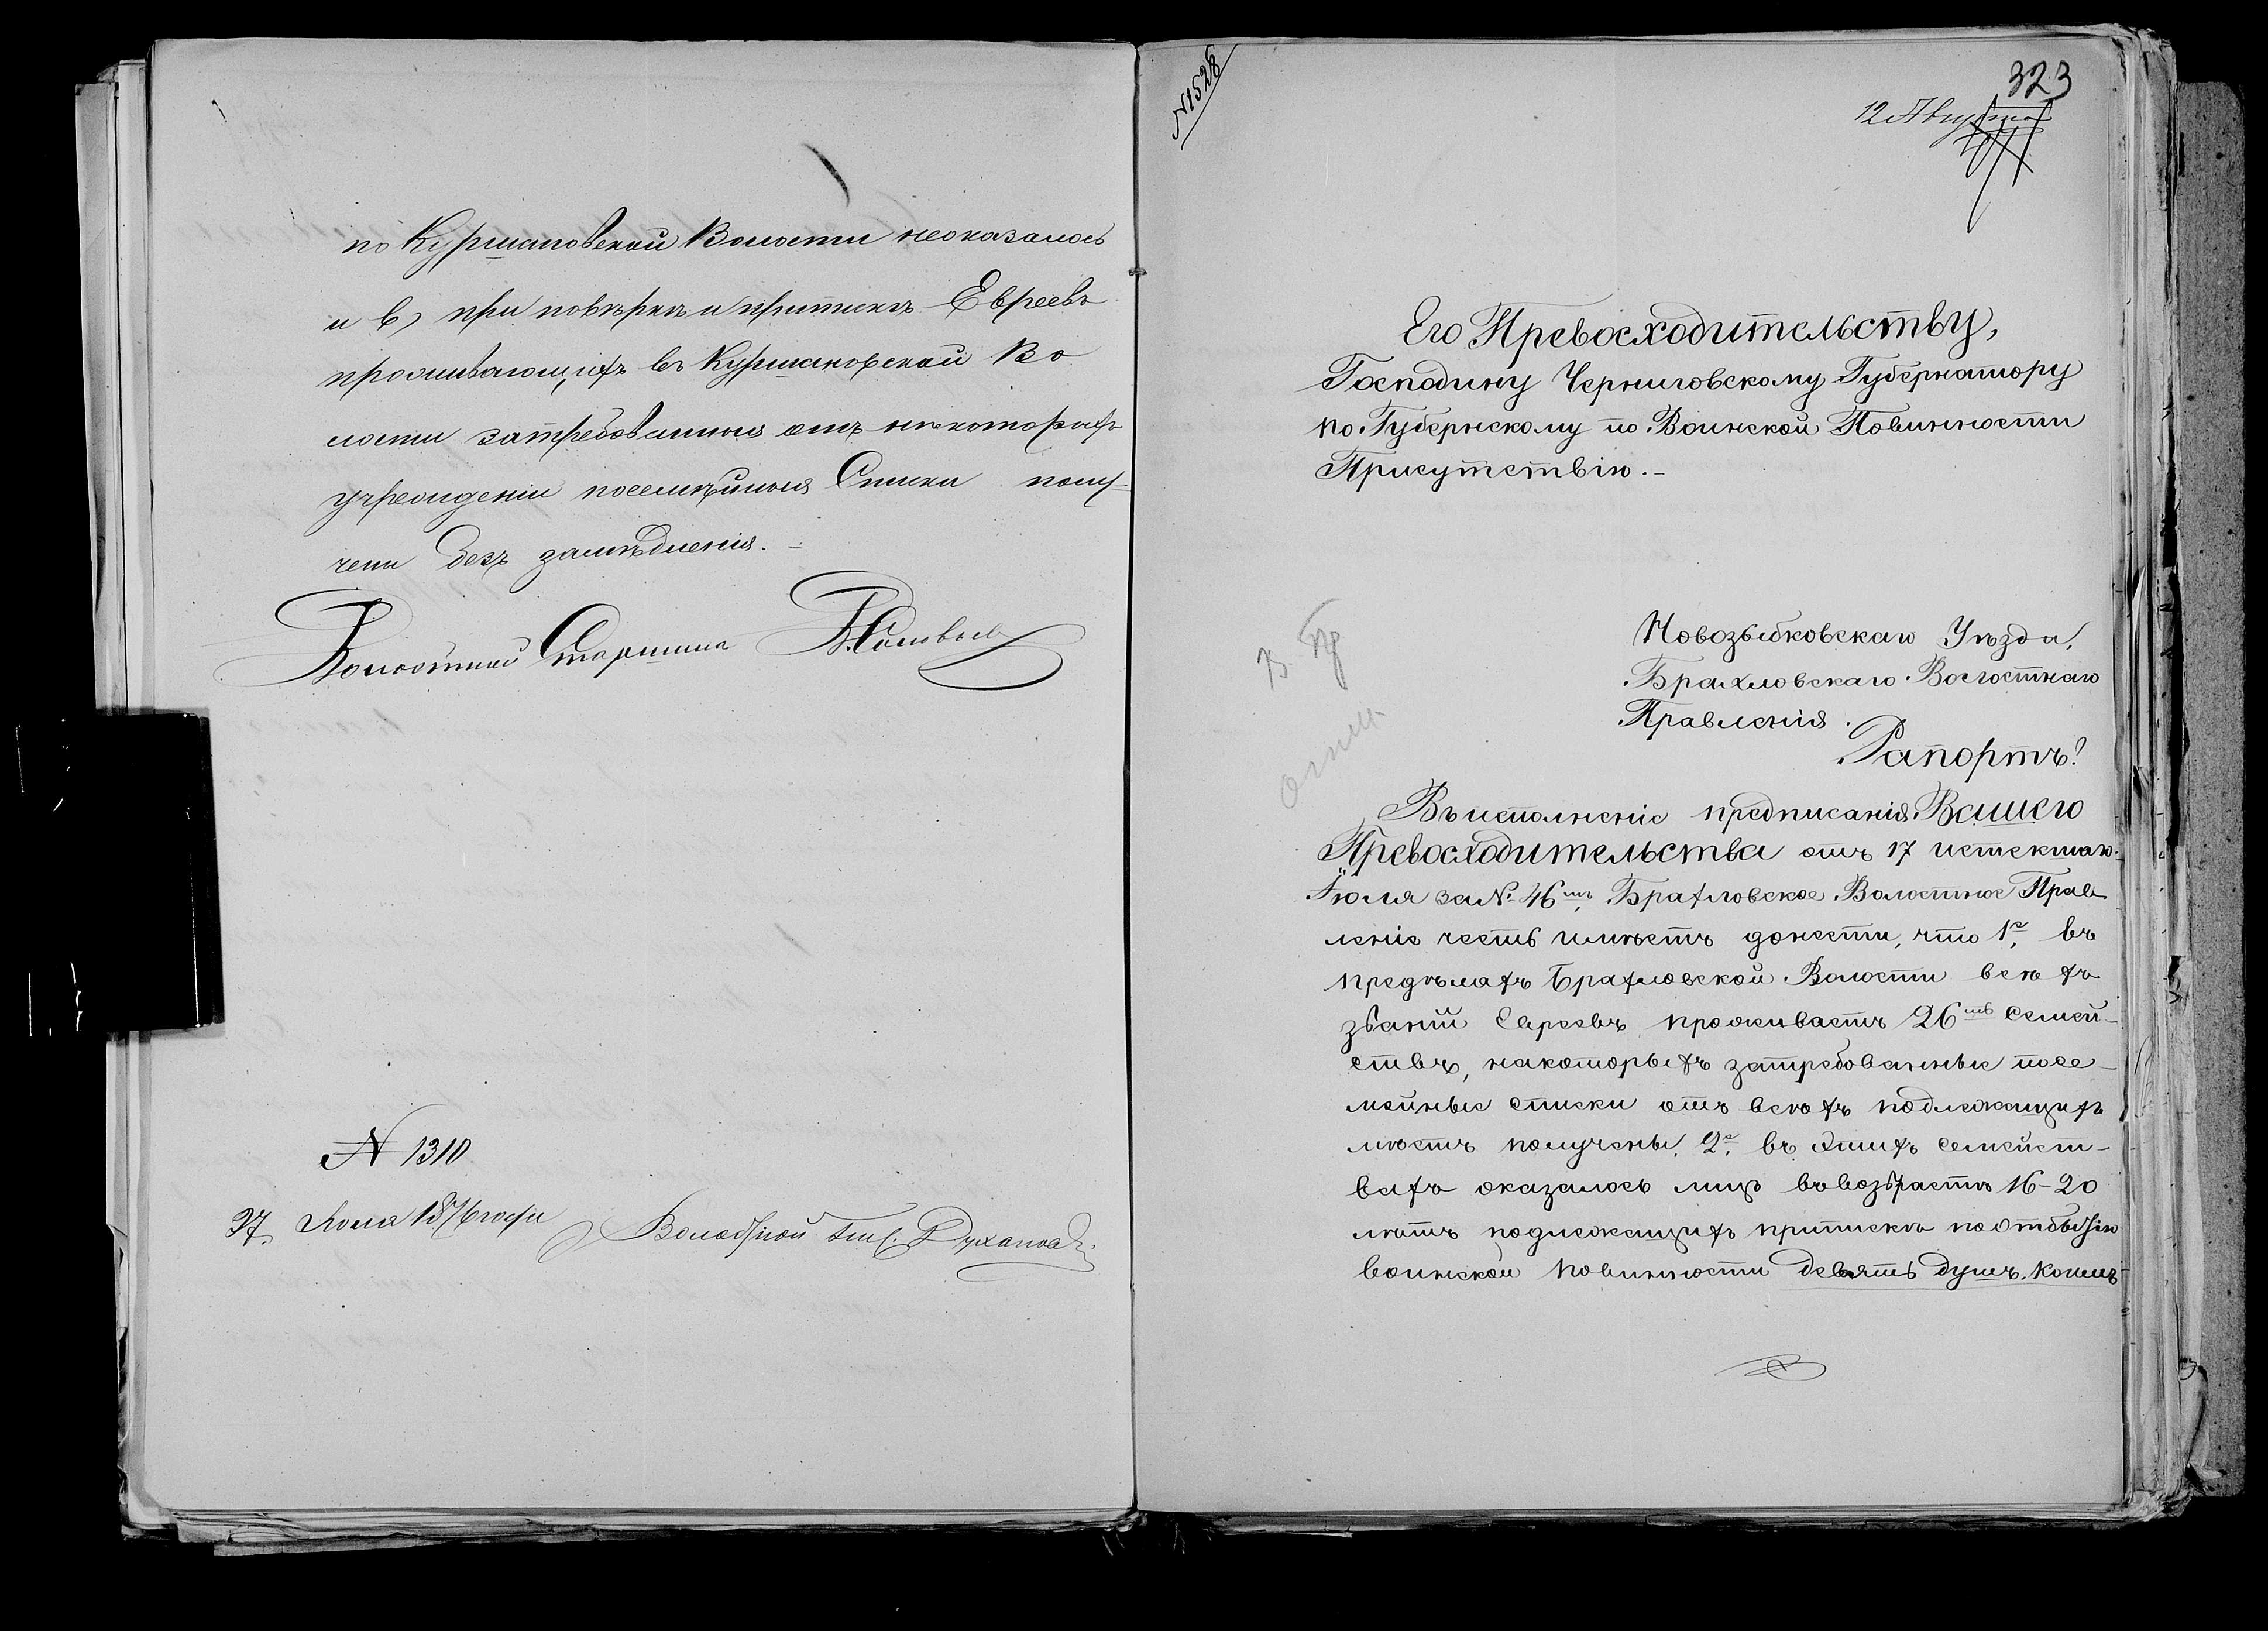 по Куршановской Волости неоказалось
и в) при повѣркѣ и припискѣ Евреевъ
проживающихъ въ Куршановской Во
лости затребованныя отъ нѣкоторыхъ
учрежденій посемѣйныя Списки полу-
чены безъ замѣдленія.-
Волостной Старшина
№ 1310
27 Іюля 1876 года
Волостной Пис.
№1528
323
12 Августа
Его Превосходительству,
Господину Черниговскому Губернатору
по Губернскому по Воинской Повинности
Присутствію.-
Новозыбковскаго Уѣзда,
Брахловскаго Волостнаго
Правленія.
Рапортъ!
Въ исполненіе предписанія Вашего
Превосходительства отъ 17 истекшаго
Іюля за № 46мъ, Брахловское Волостное Прав
леніе честь имѣетъ донести, что 1е, въ
предѣлахъ Брахловской Волости всѣхъ
званій Евреевъ проживаетъ 26ть семей-
ствъ, накоторыхъ затребованные посе-
мейные списки отъ всѣхъ подлежащихъ
мѣстъ получены, 2е, въ этихъ семейст-
вахъ оказалось лицъ въ возрастѣ 16-20
лѣтъ подлежащихъ припискѣ по отбытію
воинской повинности девять душъ. коимъ